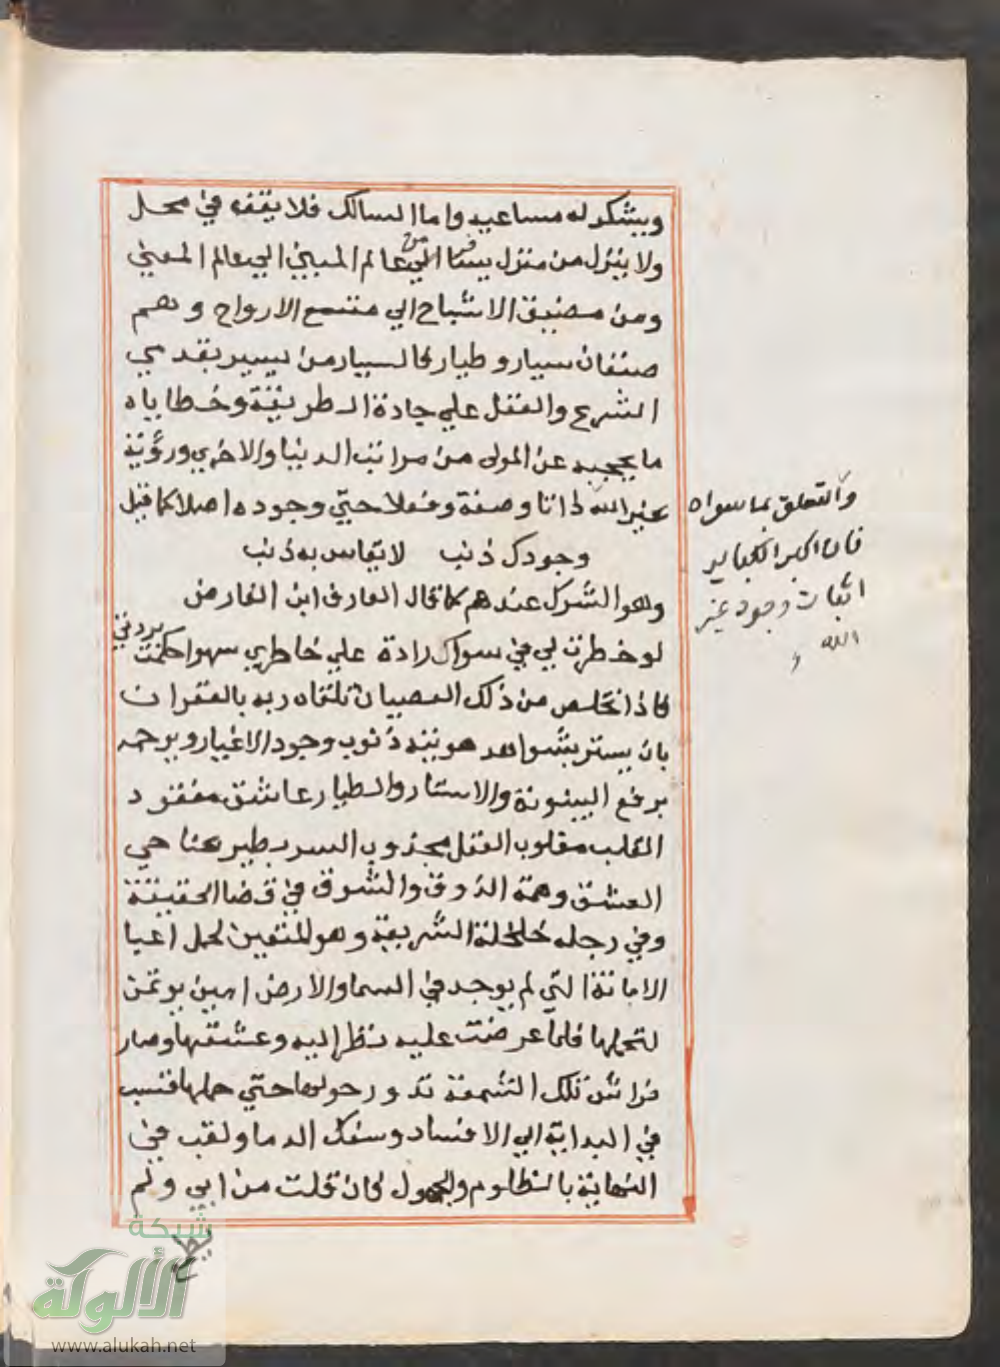 ويشكر له مساعيه واما السالك فلا يقف في محل
ولا ينزل من منزل يسافر من عالم المبين الي عالم المعين
ومن مضيق الاشباح الي متسع الارواح وهم
صنفان سيار وطيار فالسيار من يسير بقدمي
الشرع والعقل علي جادة الطريقة وخطاياه
ما يحجبه عن المولى من مراتب الدنيا والاخري ورؤية
غير الله ذاتا وصفة وفعلا حتي وجوده اصلا كما قيل
وجودك ذنب لا يقاس به ذنب
وهو الشرك عندهم كما قال العارف ابن الفارض
لو خطرت لي في سواك رادة علي خاطري سهوا حكمت بردتي
فاذا تخلص من ذلك العصيان تلقاه ربه بالغفران
بان يستر بشواهد هويته ذنوب وجود الاغيار ويرحمه
برفع البينونة والاستار والطيار عاشق مفقود
القلب مقلوب العقل مجذوب السر يطير بجناحي
العشق وهمة الذوق والشوق في فضا الحقيقة
وفي رجله خلخلة الشريعة وهو المتعين لحمل اعبا
الامانة التي لم يوجد في السما والارض امين يوتمن
لتحملها فلما عرضت عليه نظر اليه وعشقها وصار
فراش تلك الشمعة تدور حولها حتي حملها فنسب
في البداية الي الافساد وسفك الدما ولقب في
النهاية بالظلوم والجهول فان قلت من ابي ولم
والتعلق بما سواه
فان اكبر الكباير
اثبات وجود غير
الله
شبكة
الألوكة
www.alukah.net